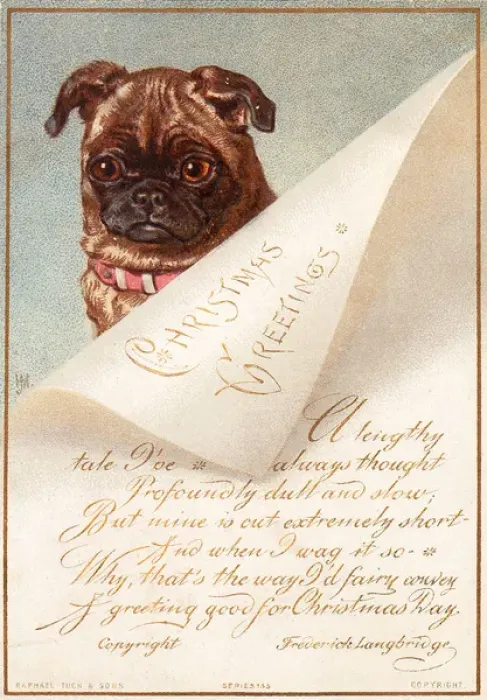 CHRISTMAS
GREETINGS
A lengthy
tale I've always thought
Profoundly dull and slow;
But mine is cut extremely short-
And when I wag it so-
Why, that's the way I'd fairy convey
A greeting good for Christmas Day.
Copyright Frederick Langbridge
RAPHAEL TUCK & SONS SERIES 755 COPYRIGHT.